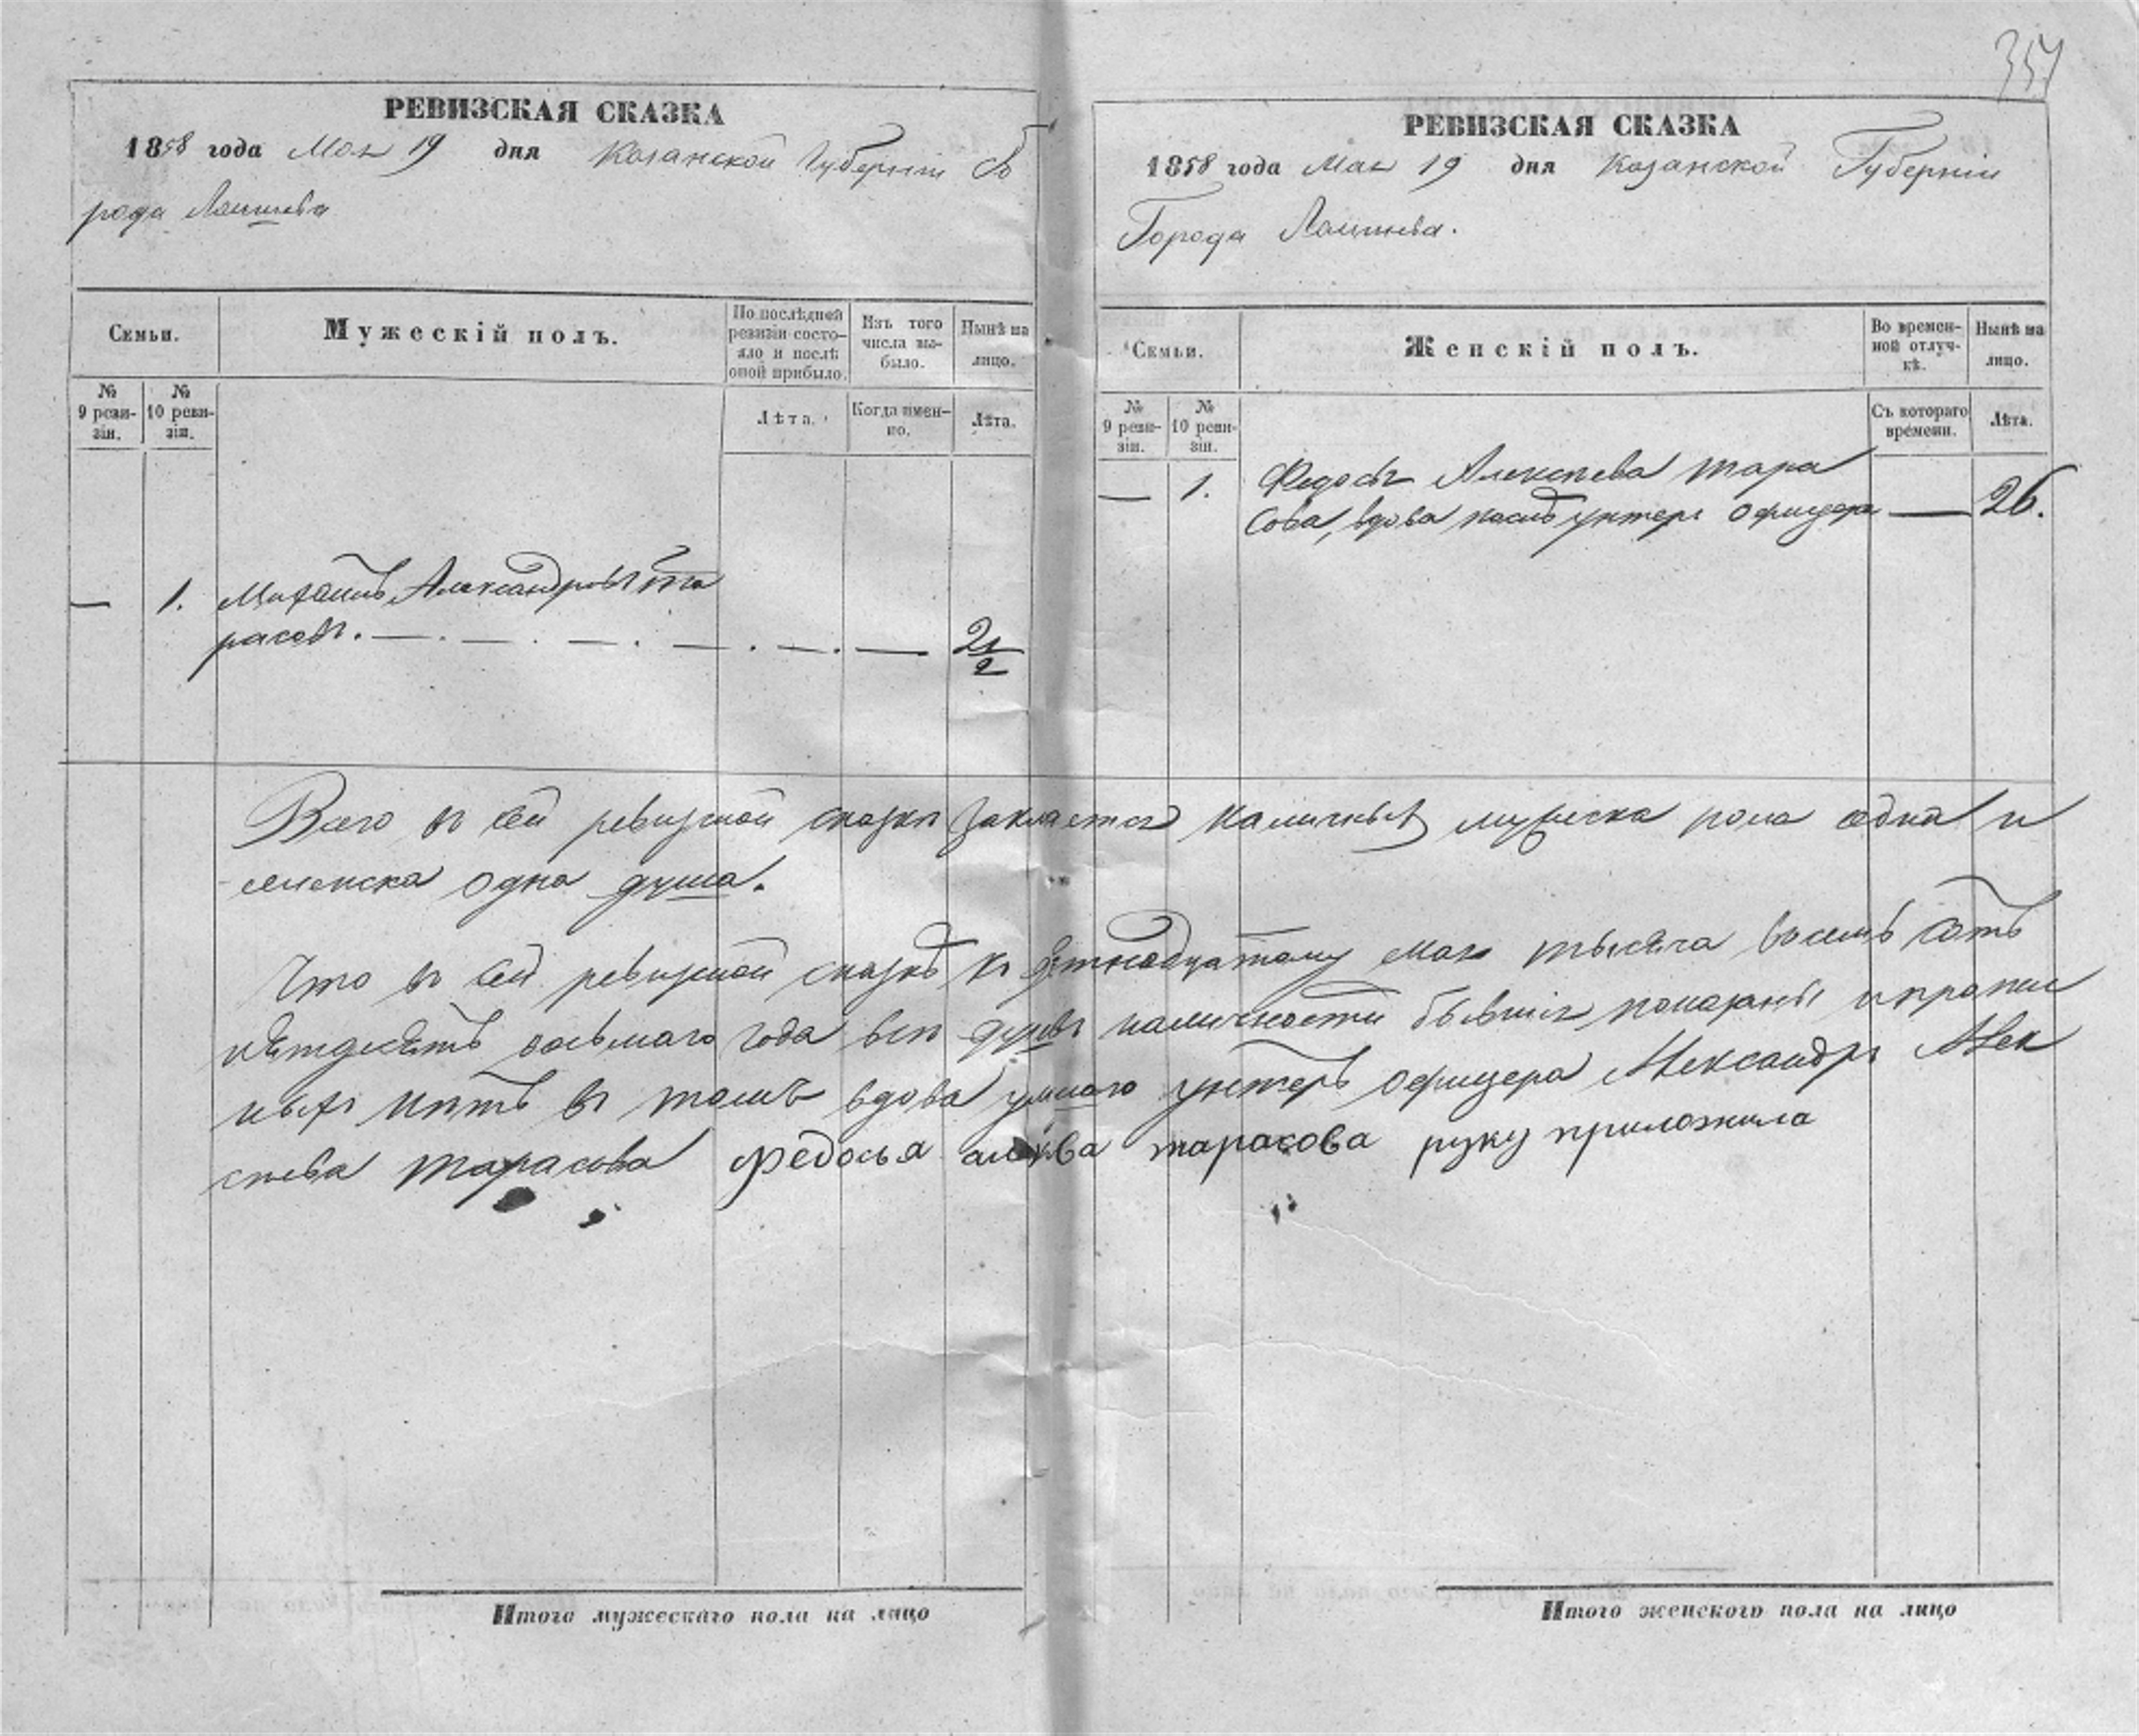 357
РЕВИЗСКАЯ СКАЗКА
1858 года Мая 19 дня Казанской Губерніи Го
рода Лаишева
Семьи.
Мужескій полъ.
По послѣдней ревизіи состояло и послѣ оной прибыло.
Изъ того числа выбыло.
Нынѣ на лицо.
№ 9 ревизіи.
№ 10 ревизіи.
Лѣта.
Когда именно.
Лѣта.
— 1. Михаилъ Александровъ Та
расовъ. — . — . — . — . — . — 2 1/2
РЕВИЗСКАЯ СКАЗКА
1858 года Мая 19 дня Казанской Губерніи
Города Лаишева.
Семьи.
Женскій полъ.
Во временной отлучкѣ.
Нынѣ на лицо.
№ 9 ревизіи.
№ 10 ревизіи.
Съ котораго времени.
Лѣта.
— 1. Федосья Алексѣева Тара
сова, вдова послѣ унтеръ офицера — 26.
Всего въ сей ревизкой сказки наличныхъ мужеска пола одна и
женска одна душа.
Что въ сей ревизкой сказкѣ къ мая тысяча восемь сотъ
пятдесятъ восьмаго года всѣ наличности бывшія показаны и пропи
ныхъ нѣтъ въ томъ вдова унтеръ офицера Александръ Алек
сѣева Тарасова Федосья тарасова руку приложила
Итого мужескаго пола на лицо
Итого женского пола на лицо